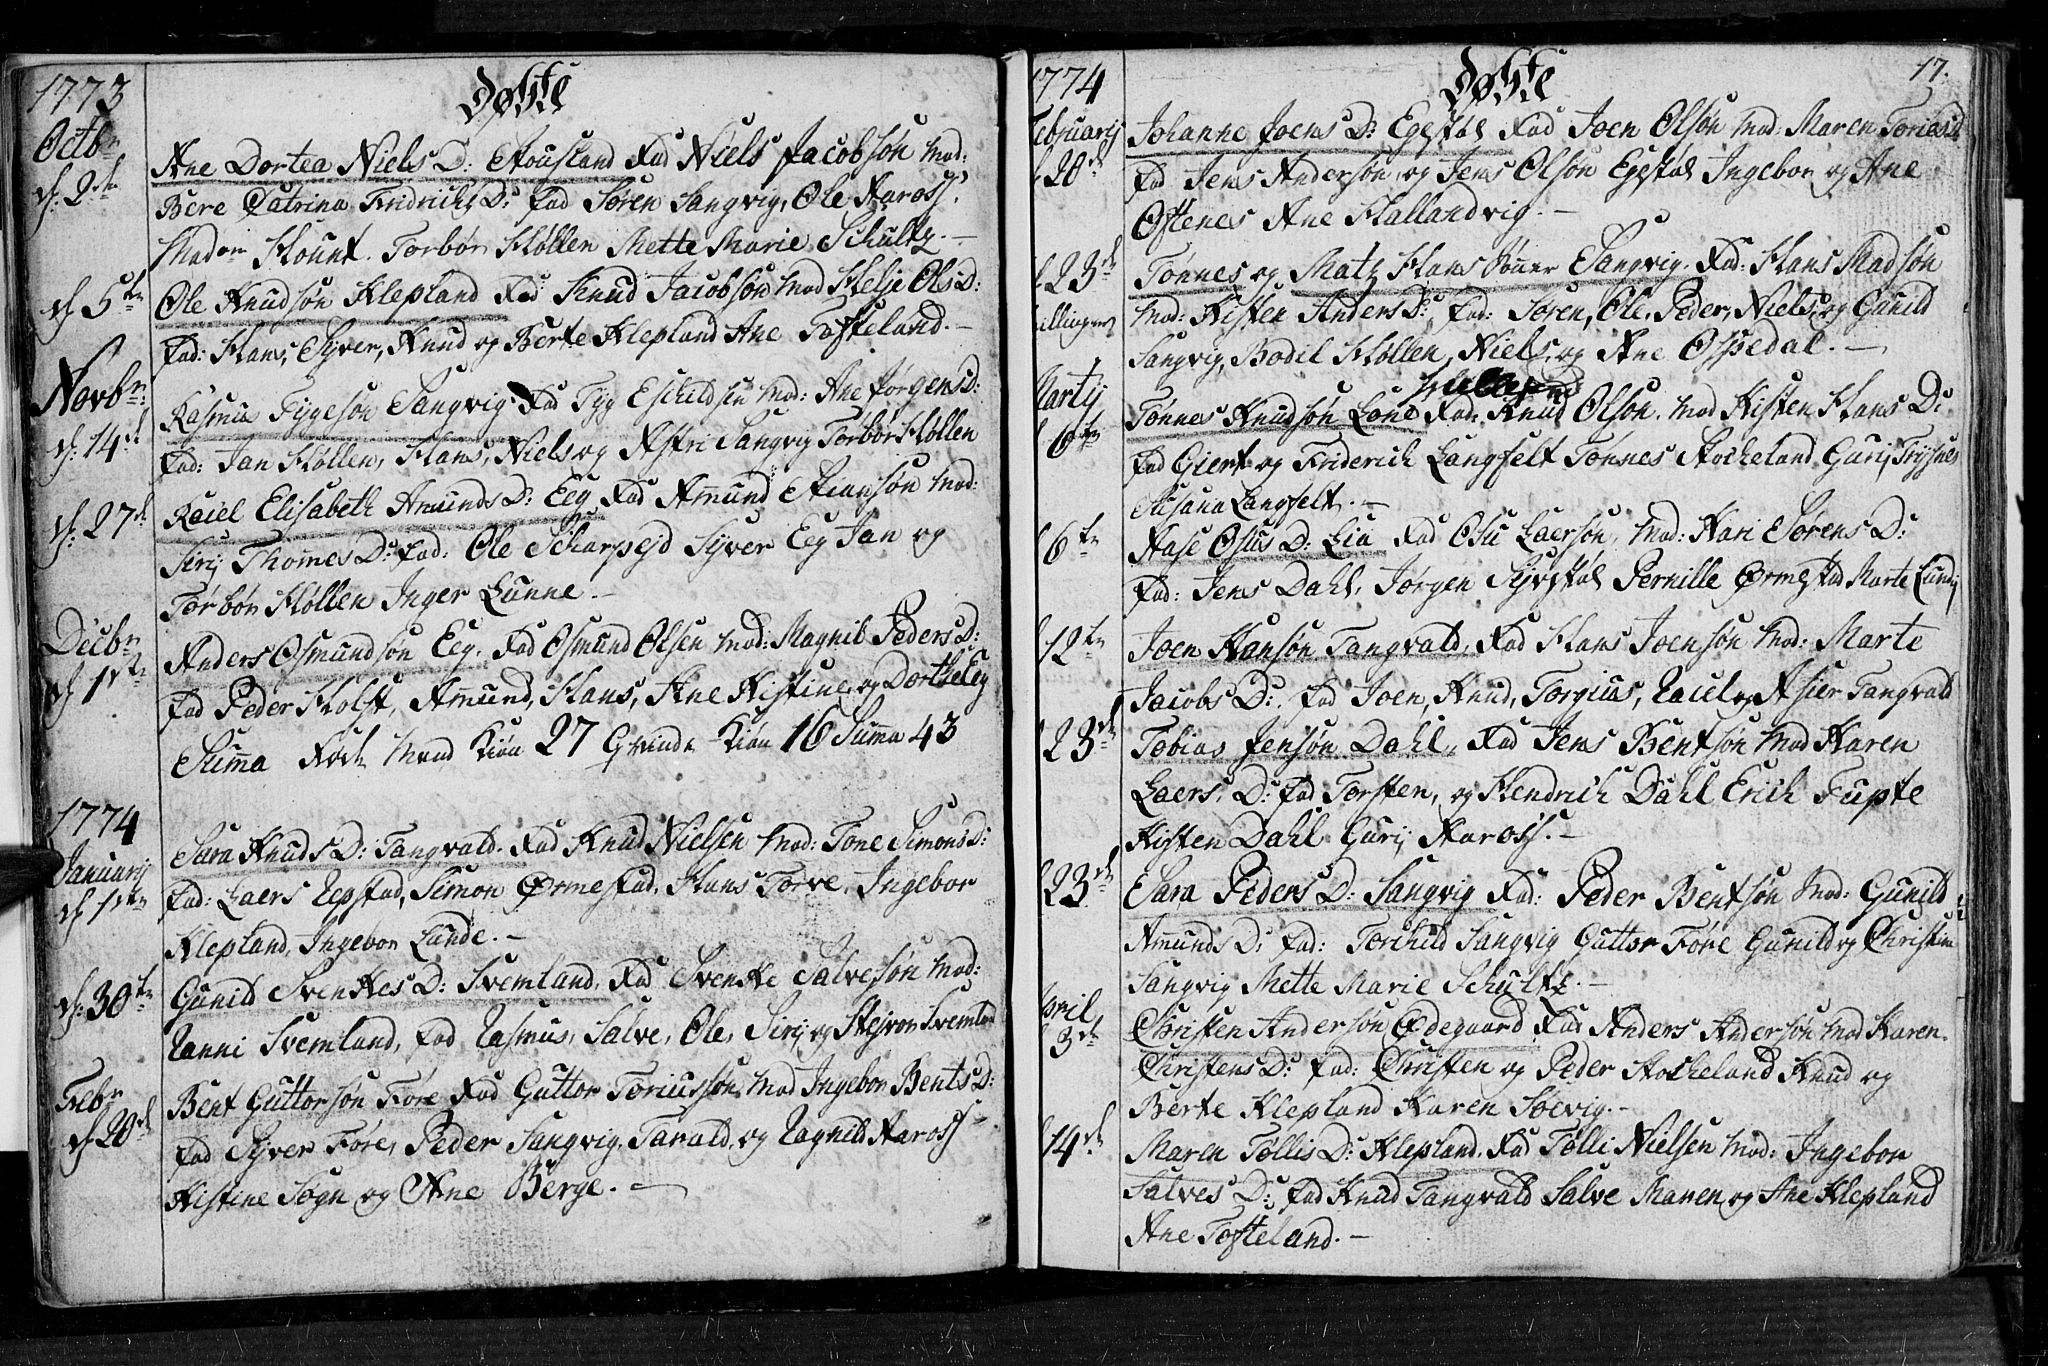 1773
Døbte
Octbr
d. 2den
Ane Dortea Niels D: Skousland Fad Niels Jacobsøn Mod:
Bere Catrina Fridrichs D: fad Søren Sangvig, Ole Aaross.
Mad Hount. Torbør Høllen Mette Marie Schultz. —
d 5te
Ole Knudsøn Klepland Fad Knud Jacobsøn Mod Helje Ols D:
fad: Hans, Syver, Knud og Berte Klepland Ane Tofteland. —
Novbr:
d: 14d
Rasmus Tygesøn Sangvig Fad Tyg Eschildsen Mod: Ane Jørgens D:
fad: Jan Høllen, Hans, Niels og Astri Sangvig Torbør Høllen
d: 27d
Raiel Elisabeth Amunds D: Eeg Fad Amund Stiansøn Mod:
Sirij Thomes D: fad: Ole Scharpejd Syver Eeg Jan og
Torbør Høllen Inger Lunne. —
Decbr
d 1ste
Anders Osmundsøn Eeg. Fad Osmund Olsen Mod: Magnil Peders D:
fad Peder Holst, Amund, Hans, Ane Kistine og Dorthe Eeg
Summa Fødte Mand Kiøn 27 Qvinde Kiøn 16 Summa 43
1774
Januarij
d 1ste
Sara Knuds D: Tangvald. Fad Knud Nielsen Mod: Tone Simons D:
fad: Laers Repstad, Simon Ørmestad, Hans Torve, Ingebor
Klepland, Ingebor Lunde. —
d: 30te
Gunild Svenkes D: Svemland, Fad Svenke Salvesøn Mod:
Ranni Svemland, fad Rasmus, Salve, Ole, Sirij og Stejron Svemland
Febr
d 20d
Bent Guttorsøn Føre Fad Guttor Toriussøn Mod Ingebor Bents D:
fad Syver Føre, Peder Sangvig, Tarald, og Ragnild Aaross
Kistine Søgn og Ane Berge. —
1774
Døbte
17.
Februarij
20d
Johanne Joens D: Egestøl Fad Joen Olsøn Mod: Maren Torias D
fad Jens Andersøn, og Jens Olsøn Egestøl Ingebor og Ane
Oftenes Ane Hallandvig. —
23d
Tvillinger
Tønnes og Matz Hans Sønner Sangvig. Fad: Hans Madsøn
Mod: Kisten Anders D: fad: Søren, Ole, Peder, Niels, og Gunild
Sangvig, Bodil Høllen, Niels, og Ane Ospedal. —
Martij
6te
Tønnes Knudsøn Lone Fad: Knud Olsøn. Mod Kisten Hans D:
fad Giert og Friderich Langfelt Tønnes Stocheland Gurij Trysnes
Susana Langfelt. —
6te
Aase Osus D: Lia Fad Osu Laersøn, Mod: Kari Sørens D:
fad: Jens Dahl, Jørgen Syvstøl Pernille Ørmestad Marte Lundj
12te
Joen Hansøn Tangvald, Fad Hans Joensøn Mod: Marte
Jacobs D:. fad Joen, Knud, Torgius, Raiel og Asier Tangvald
23d
Tobias Jensøn Dahl. Fad Jens Bentsøn Mod Karen
Laers. D: fad Torsten, og Hendrich Dahl Erich Tupte
Kisten Dahl Gurij Aaross. —
23d
Sara Peders D: Sangvig Fad: Peder Bentsøn Mod: Gunild
Amunds D: fad: Torchild Sangvig Guttor Føre Gunild og Christine
Sangvig Mette Marie Schultz. —
April
3d
Christen Andersøn Ødegaard Fad Anders Andersøn Mod Karen
Christens D: fad: Christen og Peder Stocheland Knud og
Berte Klepland Karen Søevig. —
14d
Maren Tøllis D: Klepland. Fad Tølli Nielsen Mod: Ingebor
Salves D: fad Knud Tangvald Salve Maren, og Ane Klepland
Ane Tofteland. —